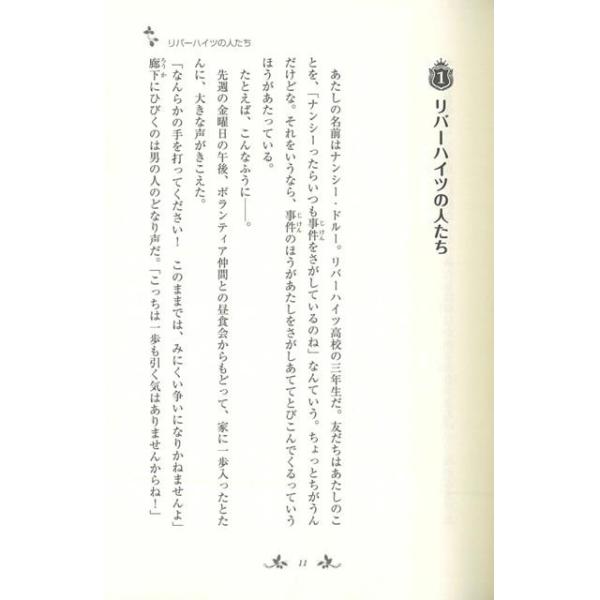 リバーハイツの人たち
1
リバーハイツの人たち
あたしの名前はナンシー・ドルー。リバーハイツ高校の三年生だ。友だちはあたしのこ
とを、「ナンシーったらいつも事件をさがしているのね」なんていう。ちょっとちがうん
だけどな。それをいうなら、事件のほうがあたしをさがしあててとびこんでくるっていう
ほうがあたっている。
たとえば、こんなふうに——。
先週の金曜日の午後、ボランティア仲間との昼食会からもどって、家に一歩入ったとた
んに、大きな声がきこえた。
「なんらかの手を打ってください!　このままでは、みにくい争いになりかねませんよ」
廊下にひびくのは男の人のどなり声だ。「こっちは一歩も引く気はありませんからね!」
11